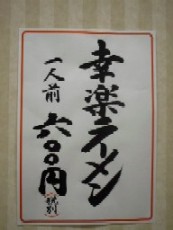 幸楽ラーメン
一人前
六〇〇円
(税別)